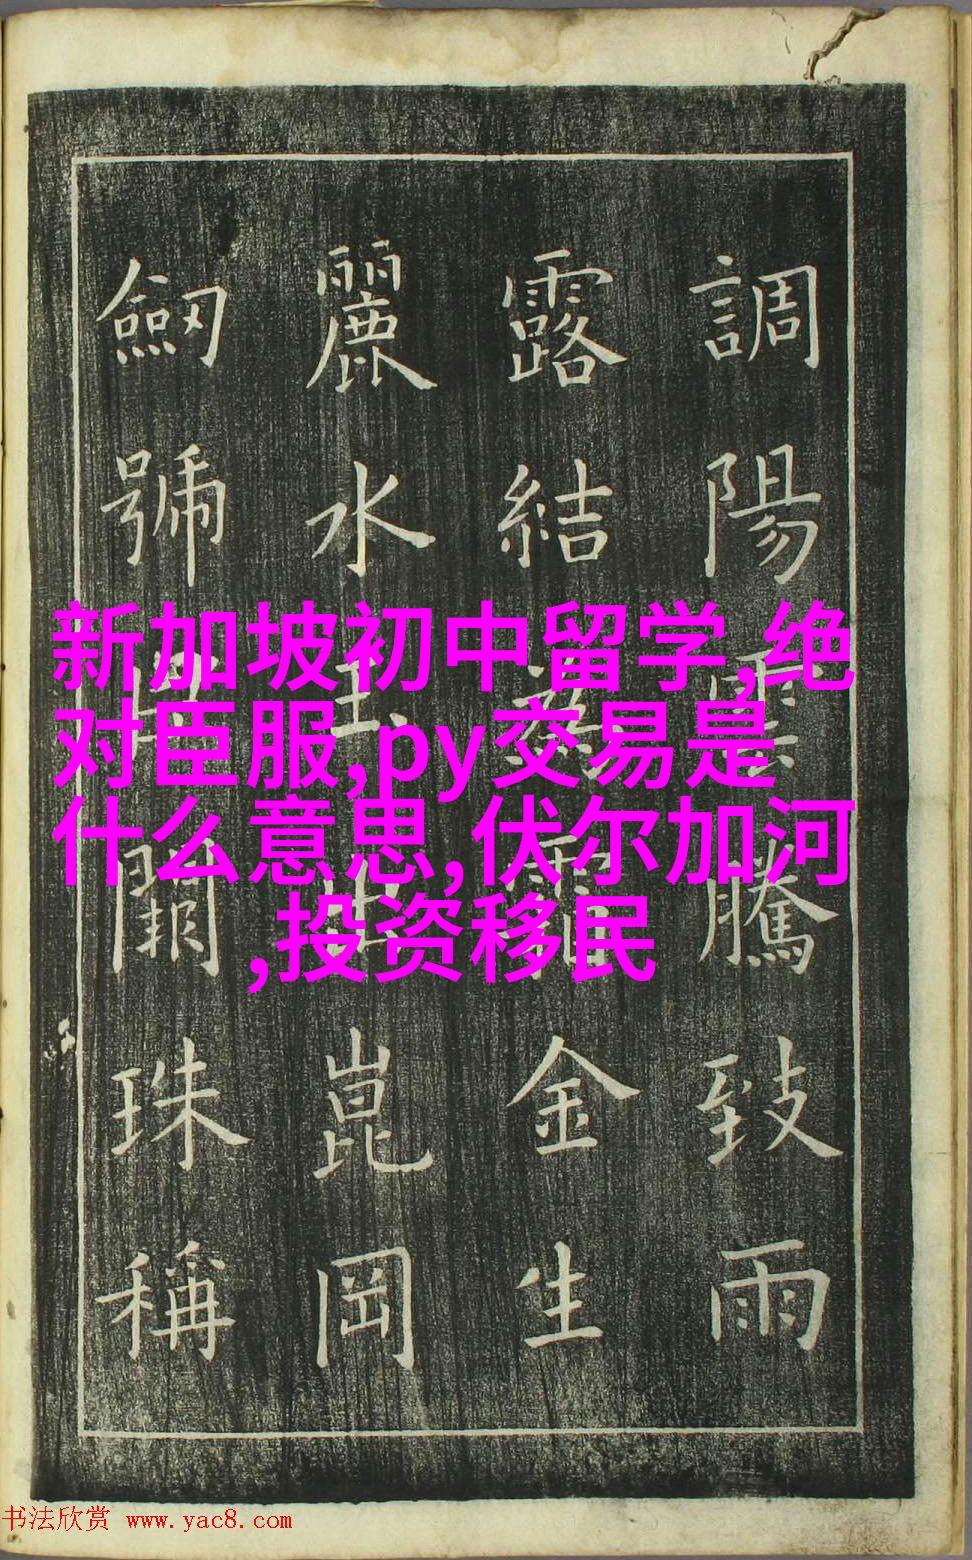 調陽雲騰致雨
露結為霜金生
麗水玉出崑岡
劒號巨闕珠稱
新加坡初中留学,绝
对臣服,py交易是
什么意思,伏尔加河
,投资移民
书法欣赏 www.yac8.com